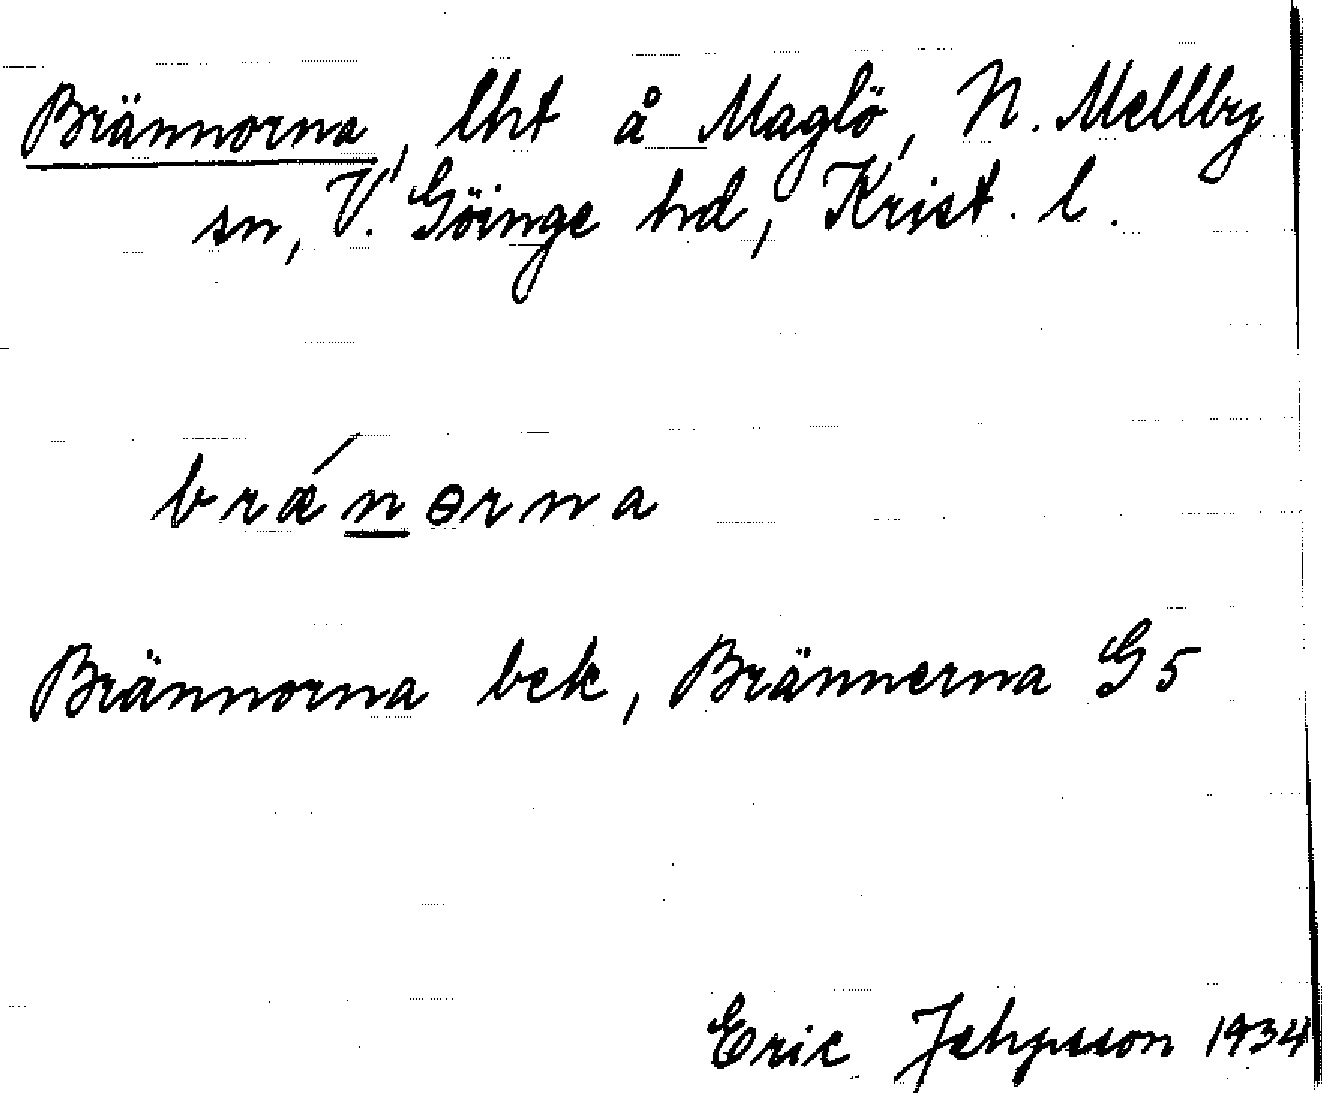 Brännorna, lht å Maglö, N. Mellby
sn, V. Göinge hd, Krist. l.
brǽn̲ɵrna
Brännorna bek, Brännerna G5
Eric 1934